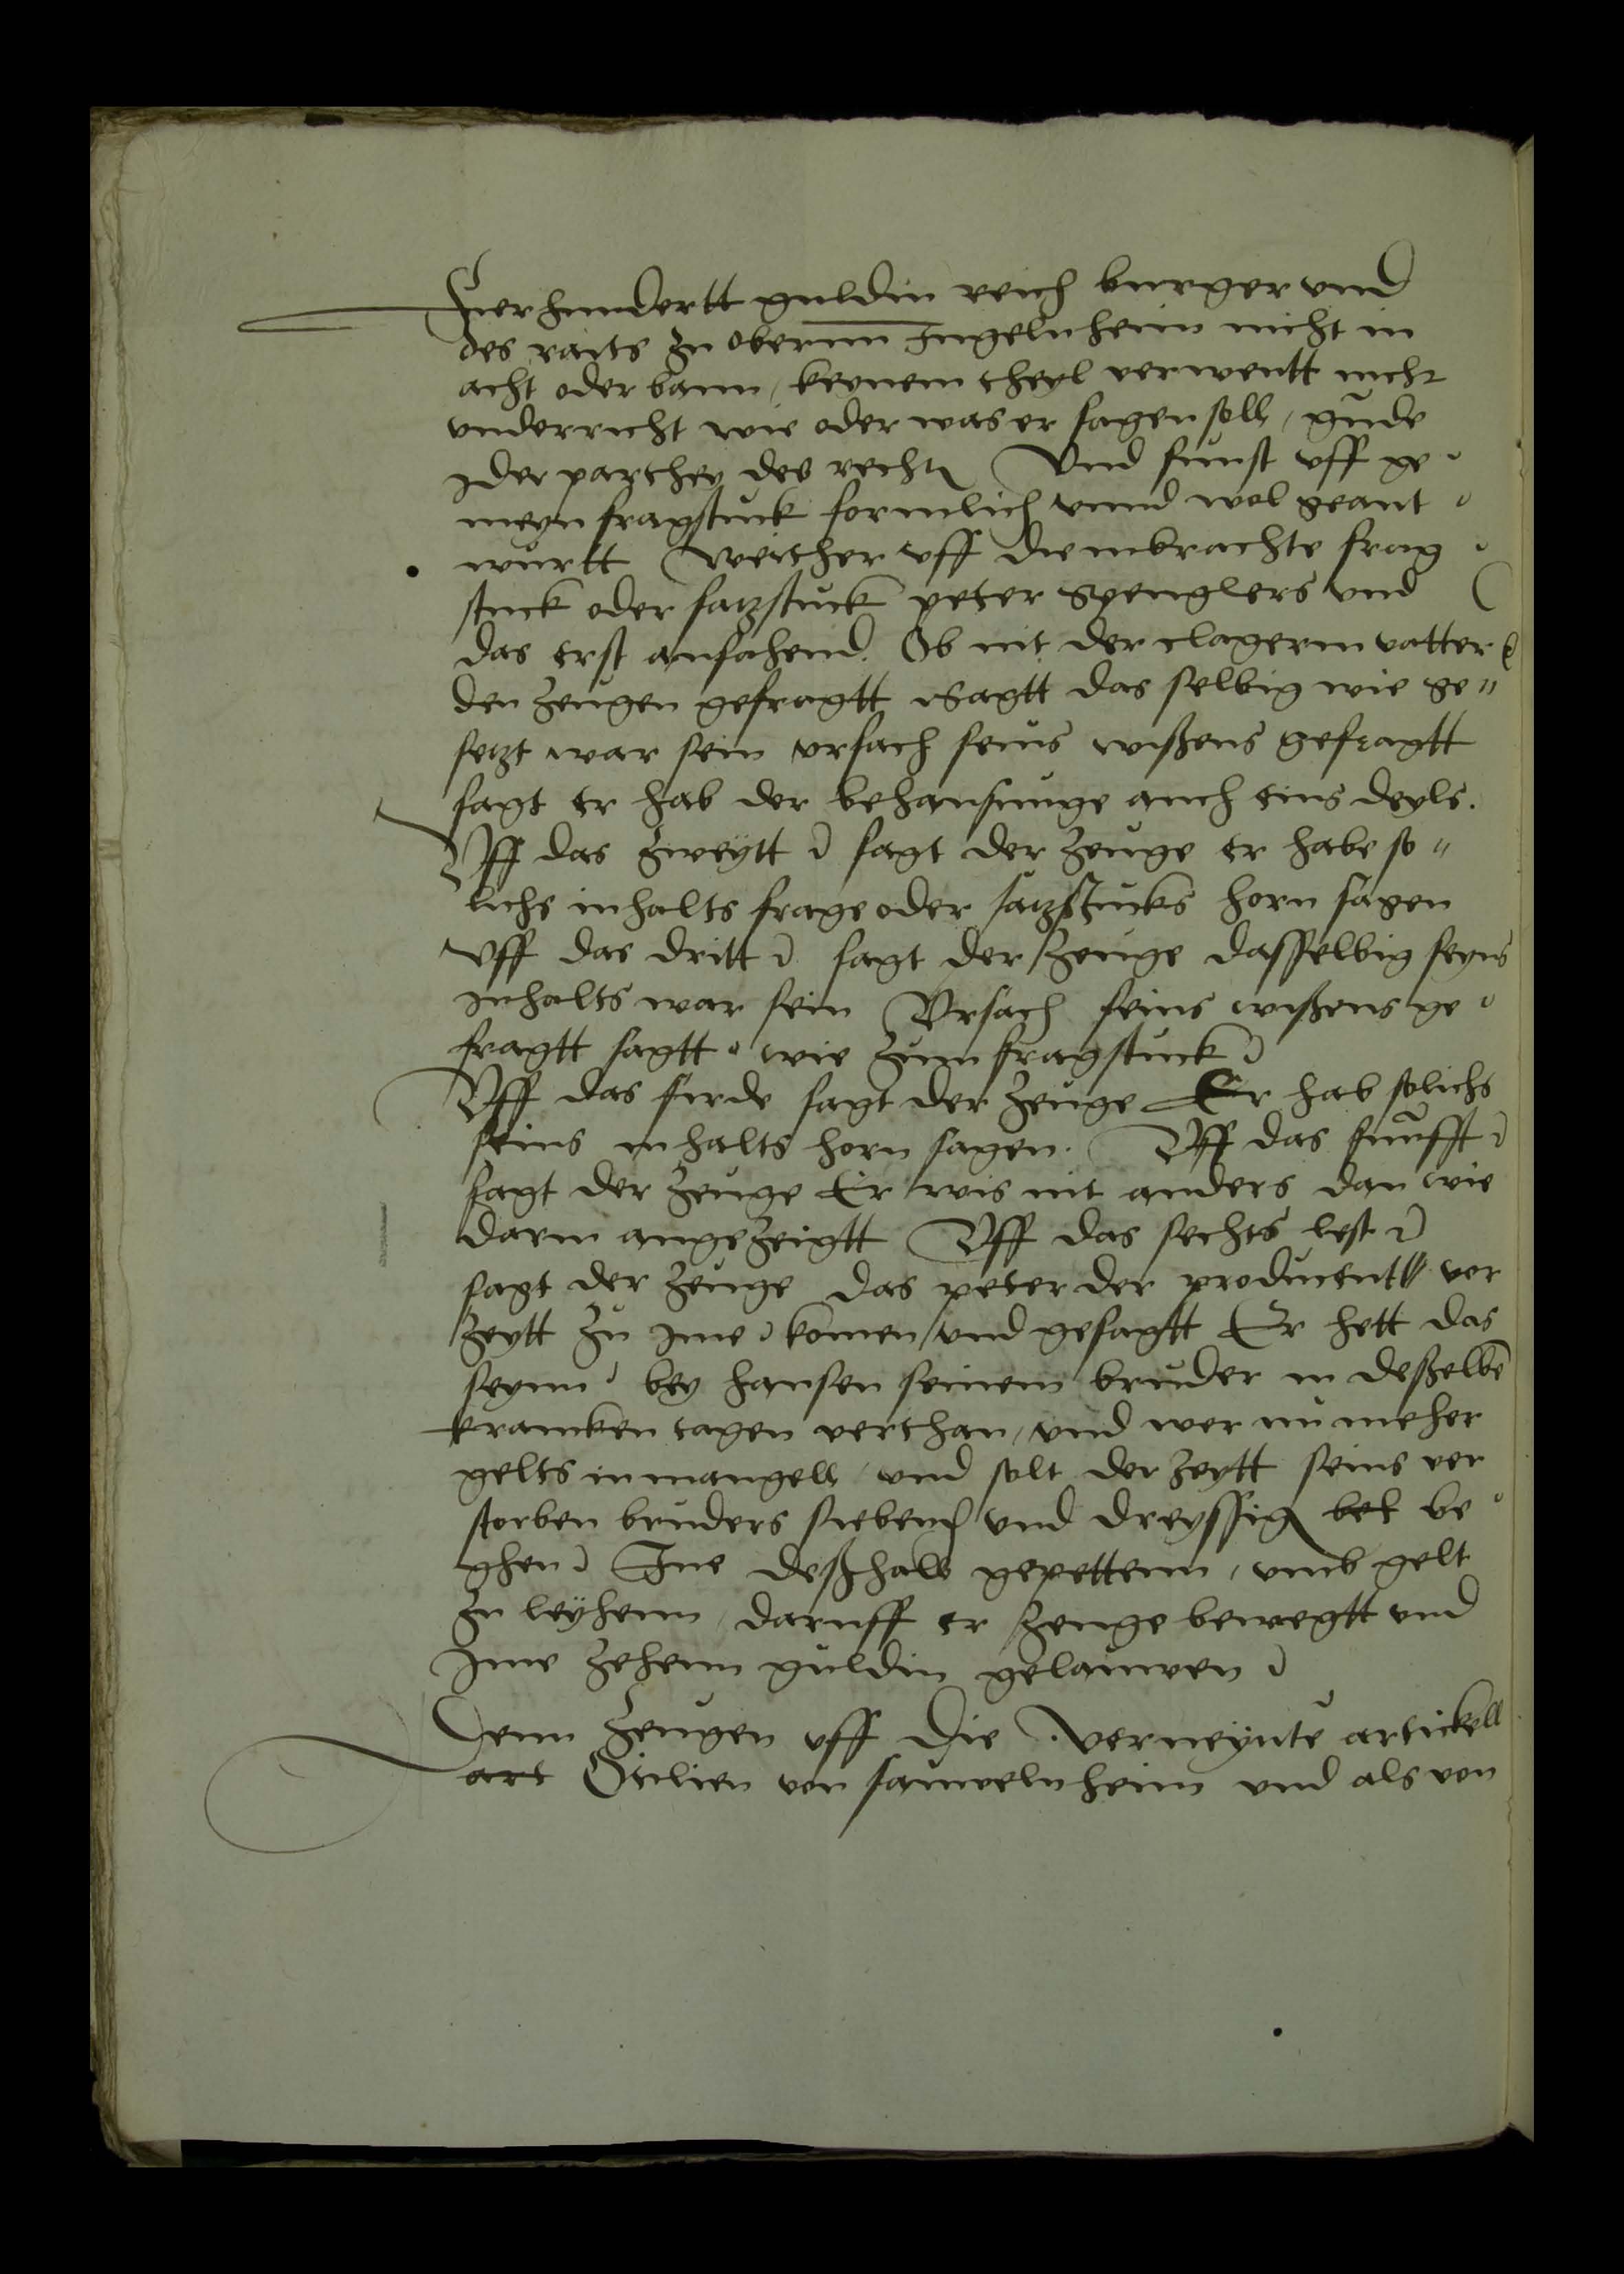 Fierhundertt guldin reich burger vnd
des raits zu obernn Ingelnheim nicht in
acht oder bann, keynem theyl verwentt nicht
vnderricht wie oder was er sagen soll, gude
Jder parthey des rechtn Vnd sunst vff ge
meyn fragstuck formlich vnnd wol geant
wurtt Weither vff die inbrachte frag
stuck oder satzstuck peter Spenglers vnd
das erst ansahend. Ob nit der clagerin vatter
den zeugen gefragtt Sagtt das selbig wie ge
setzt war sein vrsach seins wißens gefragtt
sagt er hab der behausunge auch eins deyls.
Vff das zweytt sagt der zeuge er habe so
lichs inhalts frage oder satzstucks horn sagen
Vff das dritt sagt der zeuge dasselbig seyns
Inhalts war sein Vrsach seins wißens ge
fragtt sagtt wie zum fragstuck
Vff das firde sagt der zeuge Er hab solichs
seins inhalts horn sagen. Vff das funfft
sagt der zeuge Er wis nit anders dan wie
darin angezeigtt Vff das sechts lest
sagt der zeuge das peter der producent vor
zeytt zu Ime komen vnd gesagtt Er hett das
seynn bey hansen seinem bruder in deßelbe
krancken tagen verthan, vnd wer nu meher
gelts in mangell, vnd solt der zeytt seins ver
storben bruders siebend vnd dreyssig bet be
ghen Ine deßhalb gepettenn, vmb gelt
zu leyhenn, daruff er zeuge bewegtt vnd
Ime zehenn guldin gelauwen
Denn zeugen vff die verneynte artickell
art Otilien von sauwelnheim vnd als von